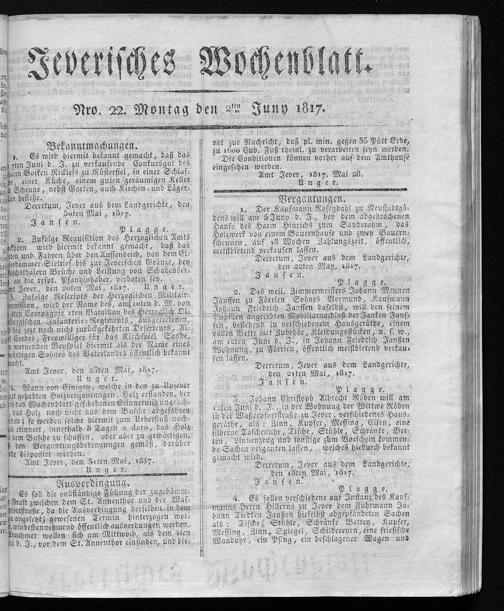 Jeverisches Wochenblatt.
Nro. 22. Montag den 2ten Juny 1817.
Bekanntmachungen.
1. Es wird hiermit bekannt gemacht, daß das
ten Juni d. J. zu verkaufende Conkursgut des
Boiken Riklefs zu Rüstersiel, in einer Schlaf-
einer Küche, einem guten geräumigen Keller
Scheune, nebst Garten, auch Kirchen- und Läger-
bestehe.
Decretum, Jever aus dem Landgerichte, den
30sten Mai, 1817.
Jansen.
Plagge.
2. Zufolge Requisition des Herzoglichen Amts
wird hiermit bekannt gemacht, daß das
und Fahren über den Aussendeich, von dem
Sieltief bis zur Jeverschen Gränze, bey
Brüche und Leistung von Schadenser-
und resp. Pfandinhaber, verboten sey.
Jever, den 20ten Mai, 1817. Unger.
3. Zufolge Rescripts der Herzoglichen Militair-
wird der Name des, am 4ten d. M. von
Campagnie 1ten Bataillon des Herzoglich
Infanterie-Regiments, ausgetretenen
bis jetzt noch nicht zurückgekehrten Deserteurs,
Freywilliger für das Kirchspiel Sande,
warnenden Beyspiel hiermit als der Name eines
Sohnes des Vaterlandes öffentlich bekannt
Amt Jever, den 23sten Mai, 1817.
Unger.
4. Wann von Einigen, welche in den zu Upjever
gehabten Holzvergantungen, Holz erstanden, der
das Wochenblatt geschehenen Erinnerung ungeachtet
das Holz noch nicht aus dem Busche abgefahren
so werden solche hiermit zum Ueberfluß noch
erinnert, innerhalb 8 Tagen a dato, das Holz
dem Busche zu schaffen, oder aber zu gewärtigen,
den Vergantungsbedingungen, darüber verfügt
wird.
Amt Jever, den 31sten Mai, 1817.
Unger.
Ausverdingung.
Es soll die vollständige Füllung der zugedämm-
zwischen dem St. Annenthor und der
da die Ausverdingung derselben in dem
angesetzt gewesenen Termin hintergezogen
öffentlich ausverdungen werden.
wollen sich am Mittwoch, als den 4ten
d. J., vor dem St. Annenthor einfinden, und die-
net zur Nachricht, daß pl. min. gegen 35 Pütt Erde,
zu 1600 Cub. Fuß rheinl. zu verarbeiten seyn werden.
Die Conditionen können vorher auf dem Amthause
eingesehen werden.
Amt Jever, 1817. Mai 28.
Unger.
Vergantungen.
1. Der Kaufmann Rosendahl zu Neustadtgö-
dens will am 5 Juny d. J., bey dem abgebrochenen
Hause des Harm Hinrichs zum Sanderahm, das
Holzwerk von einem Bauernhause und zwey Bauern-
scheunen, auf 18 Wochen Zahlungszeit, öffentlich,
meistbietend verkaufen lassen.
Decretum, Jever aus dem Landgerichte,
den 22ten May, 1817.
Jansen.
Plagge.
2. Des weil. Zimmermeisters Johann Mennen
Janssen zu Förrien Sohnes Vormund, Kaufmann
Johann Friedrich Janssen daselbst, will den seinem
Pupillen angeerbten Mobiliarnachlaß der Janken Jans-
sen, bestehend in verschiedenem Hausgeräthe, einem
vollen Bette mit Zubehör, Kleidungsstücken, u. s. w.,
am 12ten Juni d. J., in Johann Friedrich Janssen
Wohnung, zu Förrien, öffentlich meistbietend verkau-
fen lassen.
Decretum, Jever aus dem Landgerichte,
den 21ten Mai, 1817.
Jansen.
Plagge.
3. Johann Christoph Albrecht Röben will am
12ten Juni d. J., in der Wohnung der Wittwe Röben
in der Wasserpfortstraße zu Jever, verschiedenes Haus-
geräthe, als: Zinn, Kupfer, Messing, Eisen, eine
silberne Taschenuhr, Tische, Stühle, Schränke, Bet-
ten, Linnenzeug und sonstige zum Vorschein kommen-
de Sachen verganten lassen, welches hiedurch bekannt
gemacht wird.
Decretum, Jever aus dem Landgerichte, den
18ten Mai, 1817.
Jansen.
Plagge.
4. Es sollen verschiedene auf Instanz des Kauf-
manns Herrn Hillerns zu Jever dem Fuhrmann Jo-
hann Siebken Janssen hieselbst abgepfändete Sachen
als: Tische, Stühle, Schränke, Betten, Kupfer,
Messing, Zinn, Spiegel, Schildereyen, eine friesische
Wanduhr, ein Pflug, ein beschlagener Wagen und